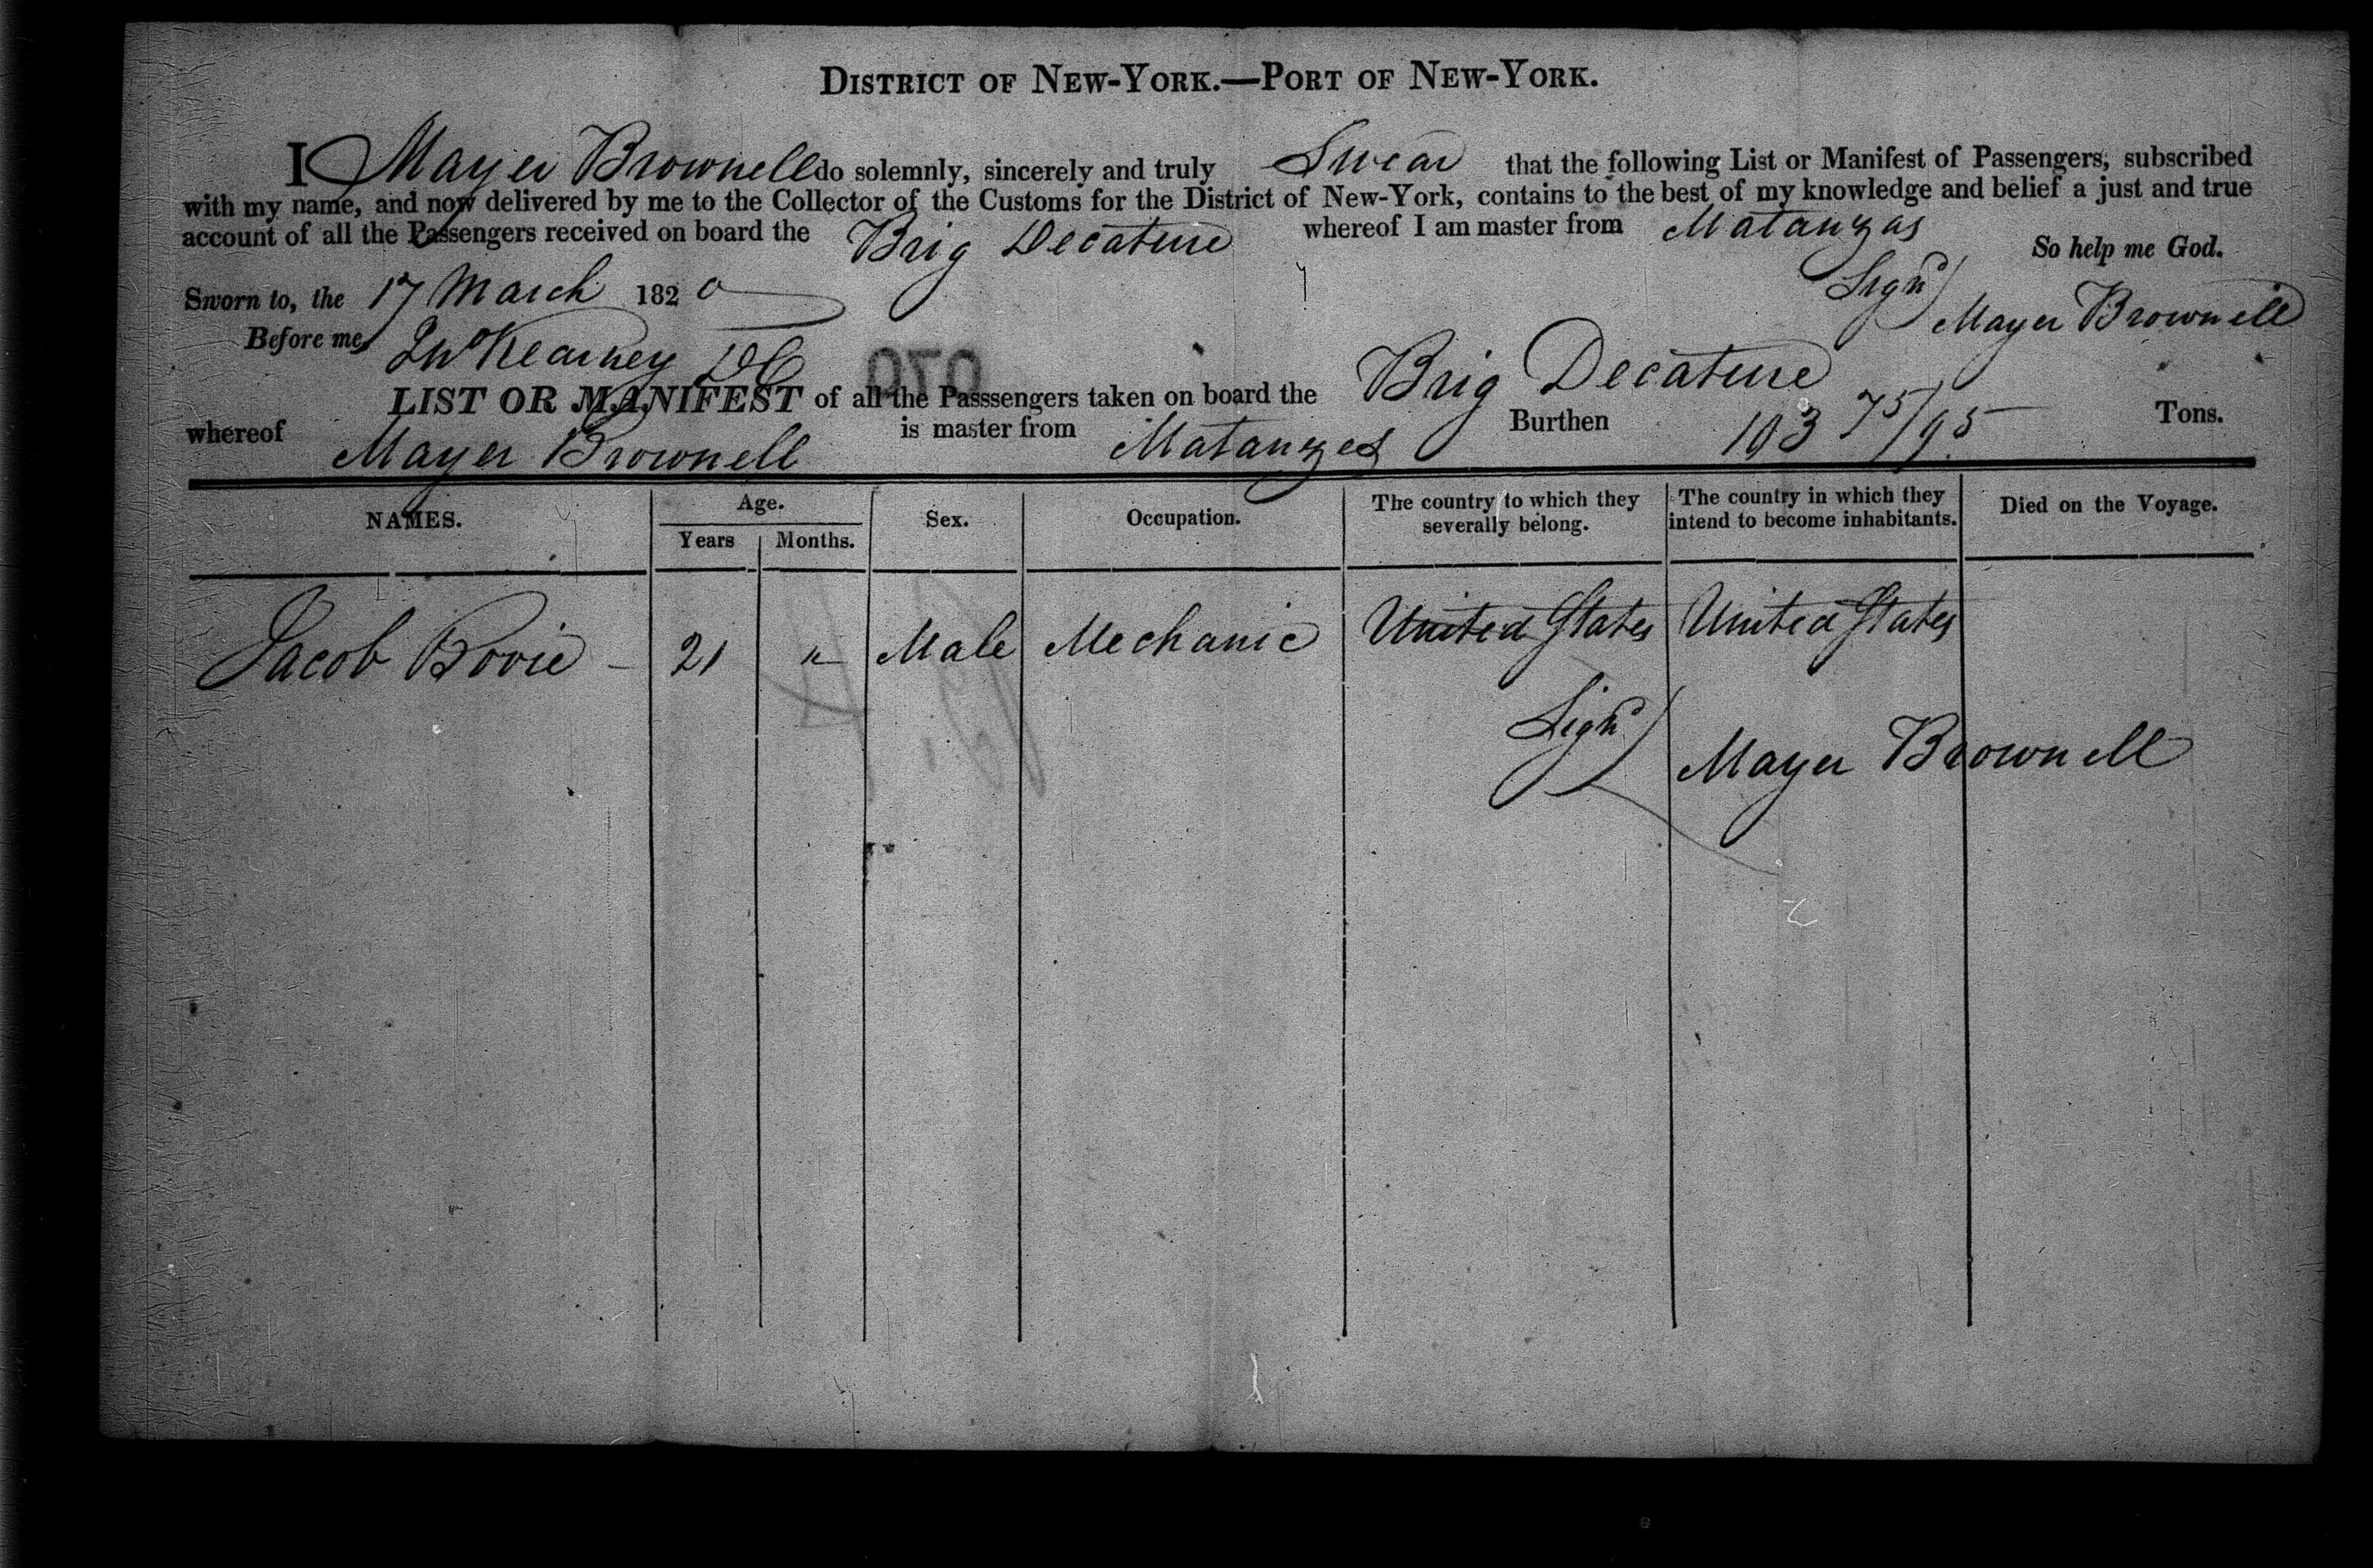 DISTRICT OF NEW-YORK.—PORT OF NEW-YORK.
I Mayer Brownell do solemnly, sincerely and truly Swear that the following List or Manifest of Passengers, subscribed
with my name, and now delivered by me to the Collector of the Customs for the District of New-York, contains to the best of my knowledge and belief a just and true
account of all the Passengers received on board the Brig Decature whereof I am master from Matanzas
So help me God.
Sworn to, the 17 March 1820
Signd Mayer Brownell
Before me, Kearney DC
LIST OR MANIFEST of all the Passsengers taken on board the Brig Decature
whereof Mayer Brownell is master from Matanzes Burthen 103 75/95 Tons.
NAMES. Age. Years Months. Sex. Occupation. The country to which they severally belong. The country in which they intend to become inhabitants. Died on the Voyage.
Jacob Bovie - 21 " Male Mechanic United States United States
Signd Mayer Brownell